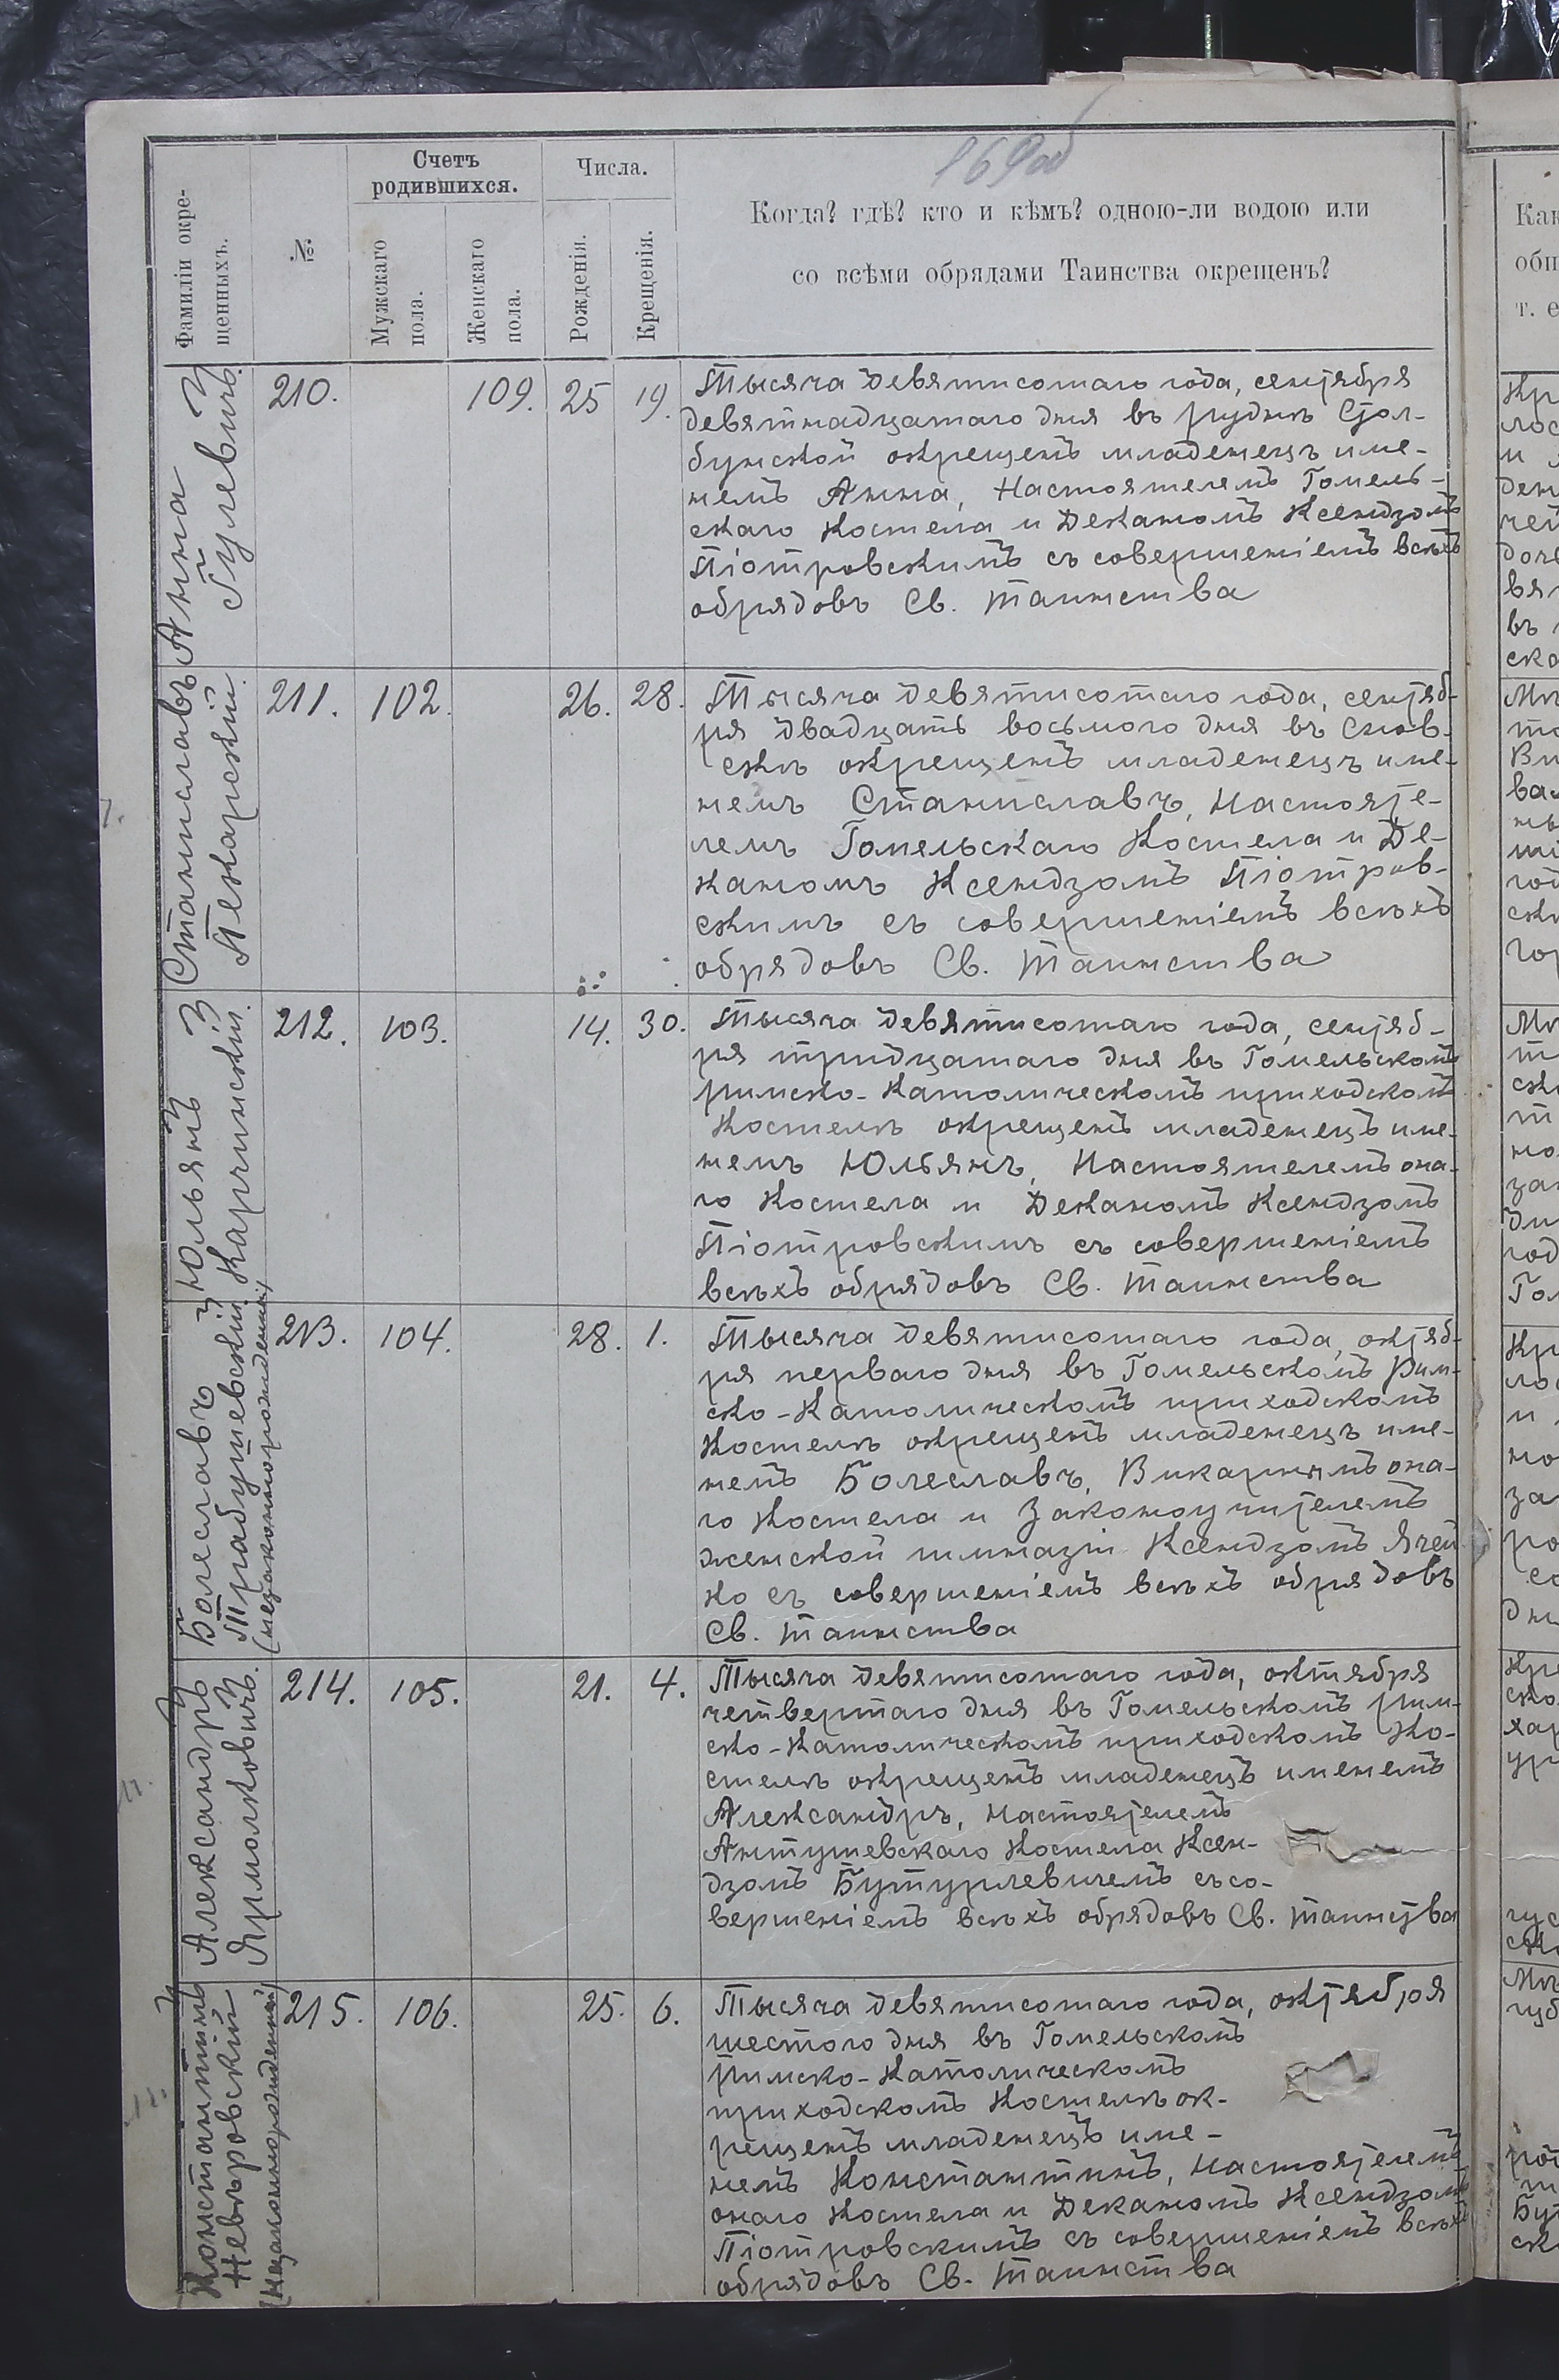 169об
Фамиліи окре-
щенныхъ.
№
Счетъ
родившихся.
Мужскаго
пола.
Женскаго
пола.
Числа.
Рожденія.
Крещенія.
Когда? гдѣ? кто и кѣмъ? одною-ли водою или
со всѣми обрядами Таинства окрещенъ?
Анна
Гулевичъ.
210.
109.
25
19.
Тысяча девятисотаго года, сентября
девятнадцатаго дня въ рудню Стол-
бунской окрещенъ младенецъ име-
немъ Анна, Настоятелемъ Гомель-
скаго Костела и Деканомъ Ксендзомъ
Піотровскимъ съ совершеніемъ всѣхъ
обрядовъ Св. таинства
Станиславъ
Пекарскій.
211.
102.
26.
28.
Тысяча девятисотаго года, сентяб-
ря двадцать восьмого дня въ Снов-
скѣ окрещенъ младенецъ име-
немъ Станиславъ, Настояте-
лемъ Гомельскаго Костела и Де-
каномъ Ксендзомъ Піотров-
скимъ съ совершеніемъ всѣхъ
обрядовъ Св. таинства
Юльянъ
Карчинскій.
212.
103.
14.
30.
Тысяча девятисотаго года, сентяб-
ря тридцатаго дня въ Гомельскомъ
римско-католическомъ приходскомъ
Костелѣ окрещенъ младенецъ име-
немъ Юльянъ, Настоятелемъ она-
го Костела и Деканомъ Ксендзомъ
Піотровскимъ съ совершеніемъ
всѣхъ обрядовъ Св. таинства
Болеславъ
Трабушевскій
(незаконнорожденный)
213.
104.
28.
1.
Тысяча девятисотаго года, октяб-
ря перваго дня въ Гомельскомъ Рим-
ско-Католическомъ приходскомъ
Костелѣ окрещенъ младенецъ име-
немъ Болеславъ, Викарнымъ она-
го Костела и Законоучителемъ
женской гимназіи Ксендзомъ Ячей
ко съ совершеніемъ всѣхъ обрядовъ
Св. таинства
Александръ
Ярмолковичъ.
214.
105.
21.
4.
Тысяча девятисотаго года, октября
четвертаго дня въ Гомельскомъ рим-
ско-Католическомъ приходскомъ Ко-
стелѣ окрещенъ младенецъ именемъ
Александръ, настоятелемъ
Антушевскаго Костела Ксен-
дзомъ Бутурлевичемъ съ со-
вершеніемъ всѣхъ обрядовъ Св. таинства
Константинъ
Невѣровскій
(Незаконнорожденный)
215.
106.
25.
6.
Тысяча девятисотаго года, октября
шестого дня въ Гомельскомъ
Римско-Католическомъ
приходскомъ Костелѣ ок-
рещенъ младенецъ име-
немъ Константинъ, настоятелемъ
онаго Костела и Деканомъ Ксендзомъ
Піотровскимъ съ совершеніемъ всѣхъ
обрядовъ Св. таинства